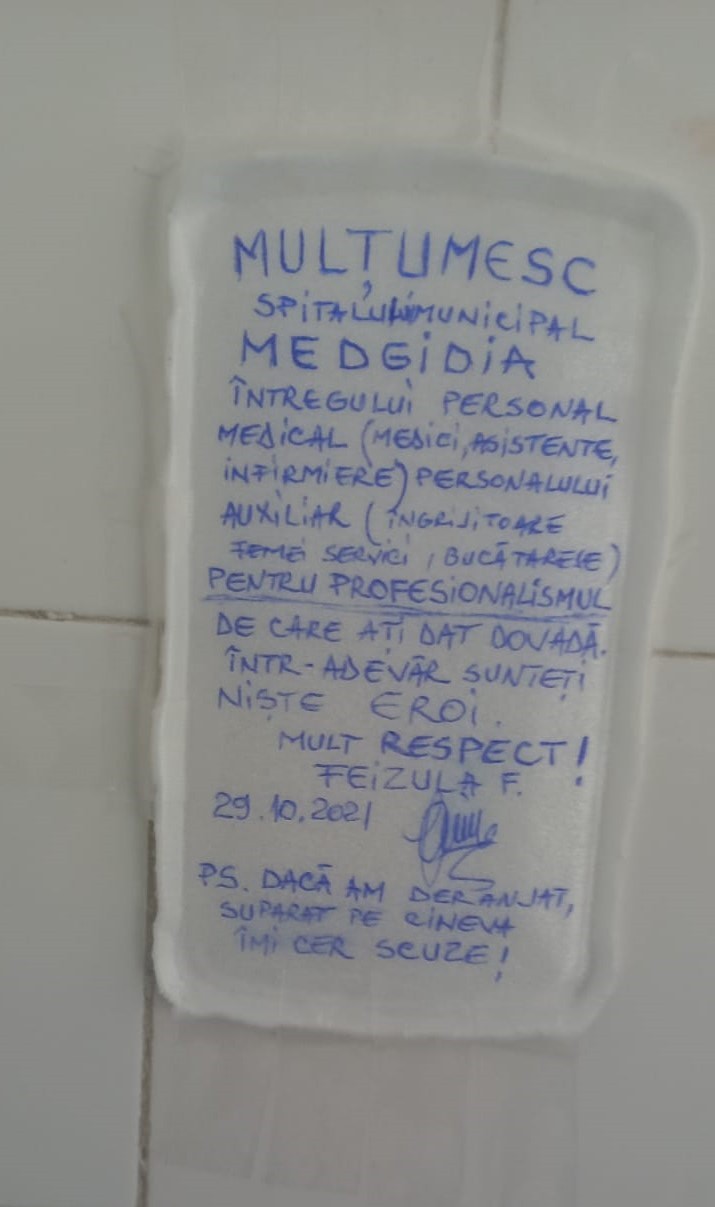 MULȚUMESC
SPITALULUI MUNICIPAL
MEDGIDIA
ÎNTREGULUI PERSONAL
MEDICAL (MEDICI, ASISTENTE,
INFIRMIERE) PERSONALULUI
AUXILIAR (ÎNGRIJITOARE
FEMEI SERVICI, BUCĂTARESE)
PENTRU PROFESIONALISMUL
DE CARE AȚI DAT DOVADĂ.
ÎNTR-ADEVĂR SUNTEȚI
NIȘTE EROI.
MULT RESPECT!
FEIZULA F.
29.10.2021
PS. DACĂ AM DERANJAT,
SUPARAT PE CINEVA
ÎMI CER SCUZE!